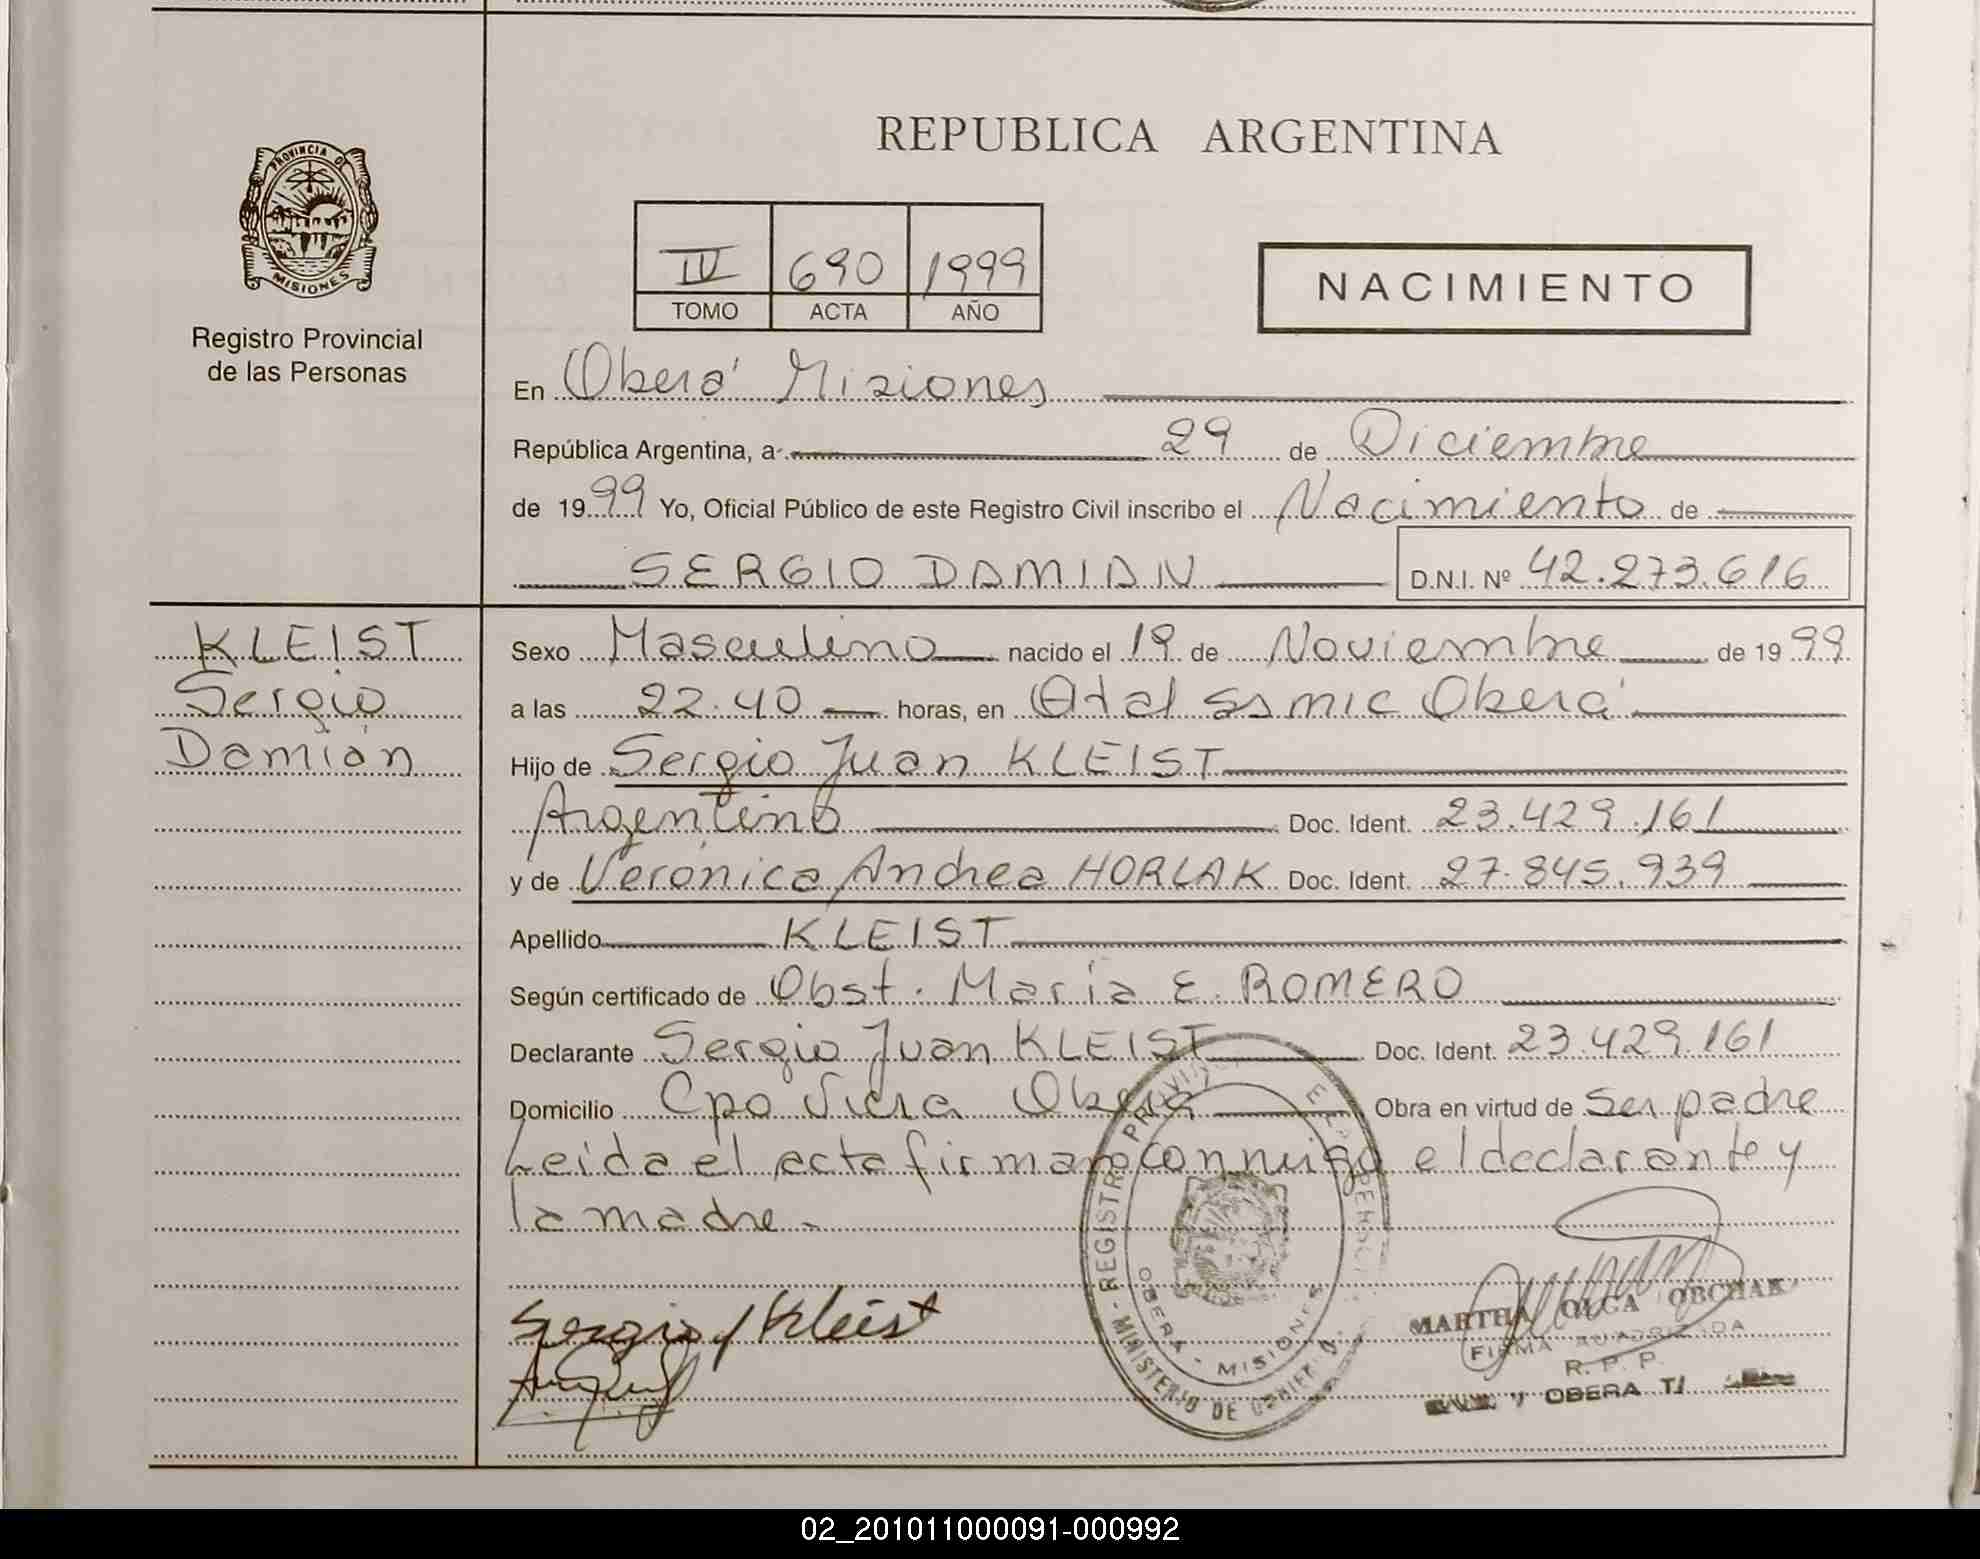 REPUBLICA ARGENTINA
PROVINCIA DE
MISIONES
Registro Provincial
de las Personas
IV 690 1999
TOMO ACTA AÑO
NACIMIENTO
En Oberá Misiones
República Argentina, a 29 de Diciembre
de 1999 Yo, Oficial Público de este Registro Civil inscribo el Nacimiento de
SERGIO DAMIAN D.N.I. Nº 42.273.616
KLEIST
Sergio
Damián
Sexo Masculino nacido el 19 de Noviembre de 1999
a las 22.40 horas, en Obera
Hijo de Sergio Juan KLEIST
Argentino Doc. Ident. 23.429.161
y de Verónica Andrea HORLAK Doc. Ident. 27.845.939
Apellido KLEIST
Según certificado de Obst. María E. ROMERO
Declarante Sergio Juan KLEIST Doc. Ident. 23.429.161
Domicilio Cpo Viera Obera Obra en virtud de Ser padre
Leida el acta firman conmigo el declarante y
la madre.
Sergio J Kleist
REGISTRO
OBERA - MISIONES
MINISTERIO DE
MARTHA OLGA OBCHAK
FIRMA
R. P. P.
OBERA
02_201011000091-000992